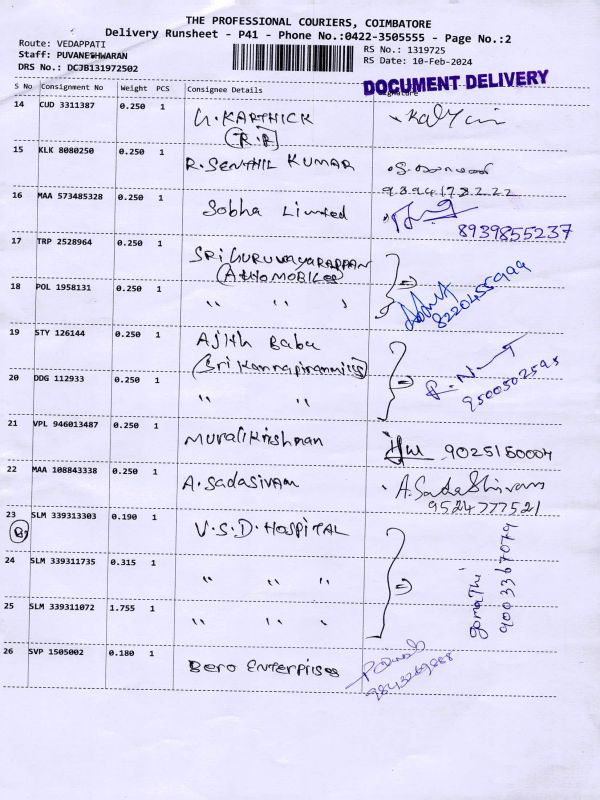 THE PROFESSIONAL COURIERS, COIMBATORE
Delivery Runsheet - P41 - Phone No.:0422-3505555 - Page No.:2
Route: VEDAPPATI
Staff: PUVANESHWARAN
DRS No.: DCJB131972502
RS No.: 1319725
RS Date: 10-Feb-2024
DOCUMENT DELIVERY
S No Consignment No Weight PCS Consignee Details Signature
14 CUD 3311387 0.250 1 U. KARTHICK
(R.P)
15 KLK 8080250 0.250 1 R. SENTHIL KUMAR
9394178222
16 MAA 573485328 0.250 1 Sobha Limited 8939855237
17 TRP 2528964 0.250 1 SRI GURUVAYARAPPAN
(AUTOMOBILES)
18 POL 1958131 0.250 1 " " " 8220455999
19 STY 126144 0.250 1 Ajith Babu
(Sri Kannapiranmills)
20 DDG 112933 0.250 1 " " 9500502595
21 VPL 946013487 0.250 1 Muralikrishnan 9025150004
22 MAA 108843338 0.250 1 A. Sadasivam A. SadaShivam
9524777521
23 SLM 339313303 0.190 1 V.S.D. HOSPITAL
24 SLM 339311735 0.315 1 " " " Gomathi 9003367079
25 SLM 339311072 1.755 1 " " "
26 SVP 1505002 0.180 1 Bero Enterprises
9843269888